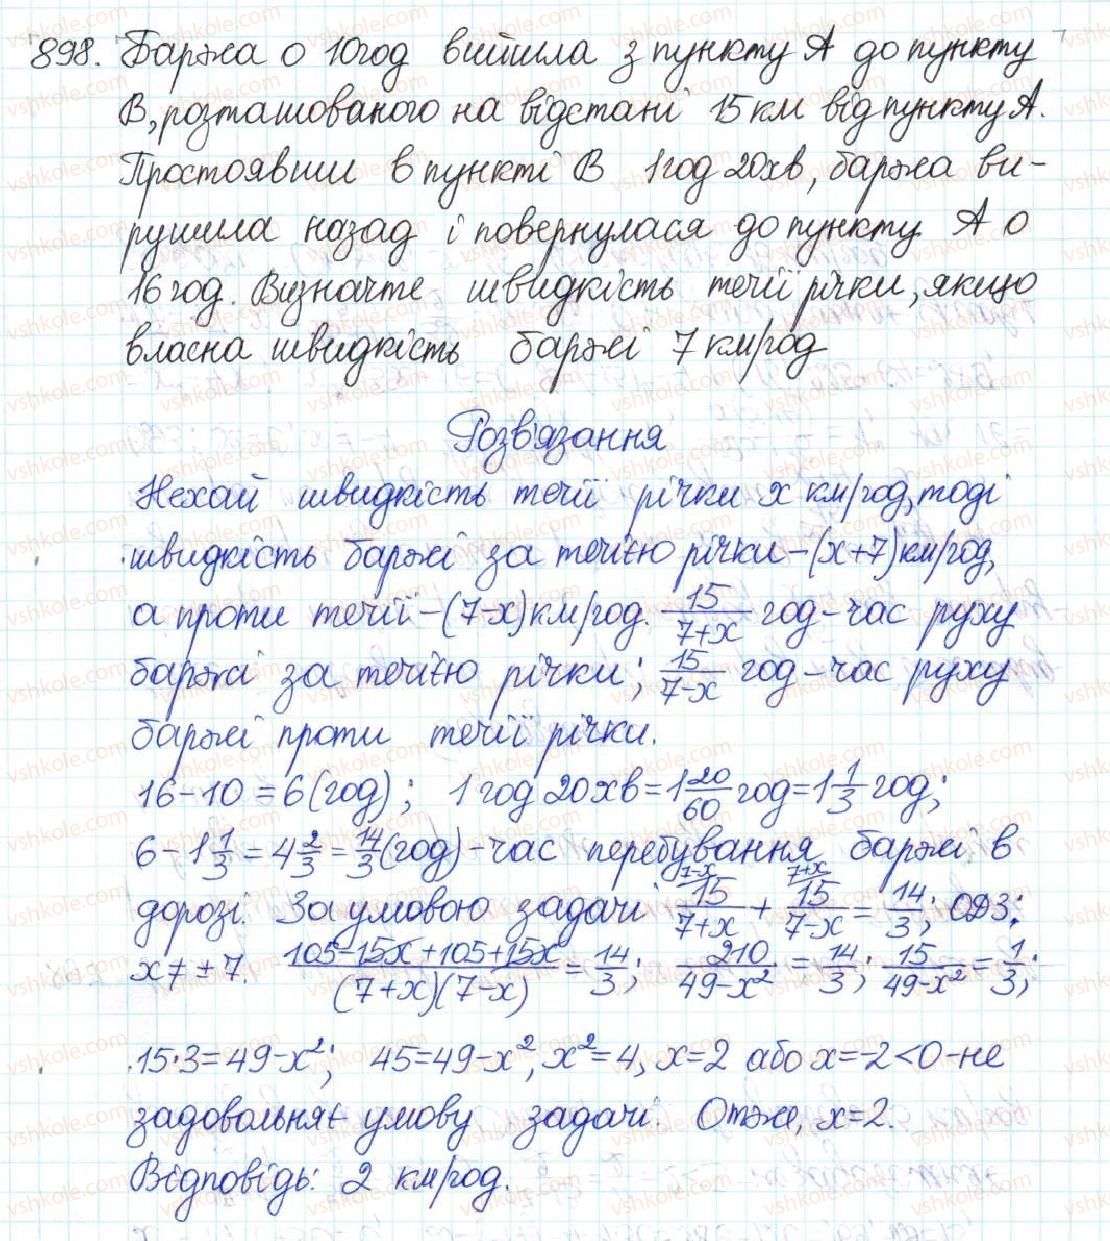 898. Баржа о 10 год вийшла з пункту А до пункту
В, розташованого на відстані 15 км від пункту А.
Простоявши в пункті В 1 год 20 хв, баржа ви-
рушила назад і повернулася до пункту А о
16 год. Визначте швидкість течії річки, якщо
власна швидкість баржі 7 км/год
Розв'язання
Нехай швидкість течії річки x км/год, тоді
швидкість баржі за течією річки – (x+7) км/год,
а проти течії – (7-x) км/год. 15/(7+x) год – час руху
баржі за течією річки; 15/(7-x) год – час руху
баржі проти течії річки.
16-10=6 (год); 1 год 20 хв = 1 20/60 год = 1 1/3 год;
6 - 1 1/3 = 4 2/3 = 14/3 (год) – час перебування баржі в
дорозі. За умовою задачі 7-x/ 15/(7+x) + 7+x/ 15/(7-x) = 14/3; ОДЗ:
x ≠ ±7. (105-15x+105+15x)/((7+x)(7-x)) = 14/3; 210/(49-x²) = 14/3; 15/(49-x²) = 1/3;
15·3=49-x²; 45=49-x², x²=4, x=2 або x=-2<0 - не
задовольняє умову задачі. Отже, x=2.
Відповідь: 2 км/год.
vshkole.com